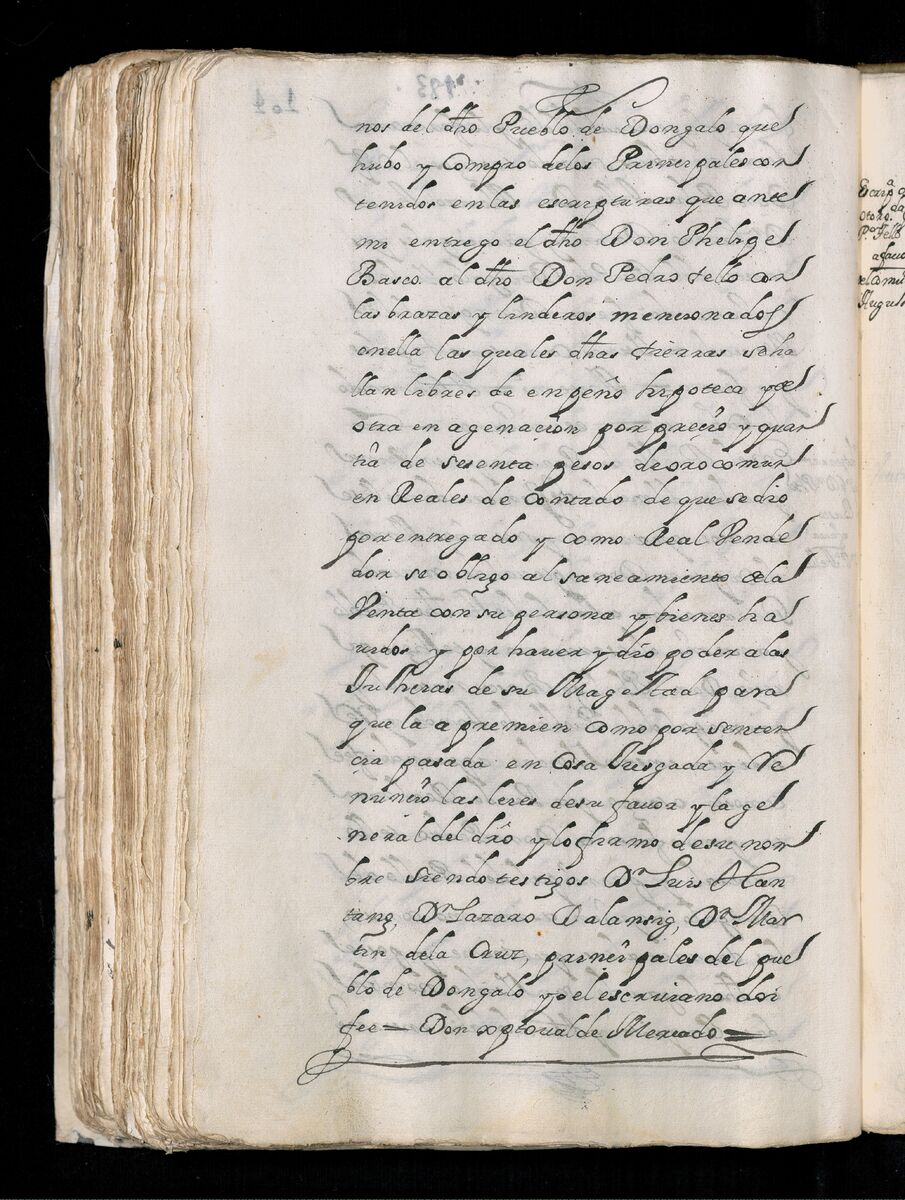 nos del dho Pueblo de Dongalo que
hubo y Compro delos Prinçipales con
tenidos en las escripturas que ante
mi entrego el dho Don Phelipe
Basco al dho Don Pedro tello con
las brazas y linderos mencionados
en ella las quales dhas tierras se ha
llan libres de enpeño hipoteca y de
otra enagenaçion por preçio y quan
tia de sesenta pesos de oro comun
en Reales de Contado de que se dio
por entregado y como Real Vende
dor se obligo al saneamiento dela
Venta con su persona y bienes ha
uidos y por hauer y dio poder alas
Justiçias de su Magestad para
que la apremien como por senten
çia pasada en Cosa Jusgada y Re
nunçio las leies de su fauor y la ge
neral del dro y lo firmo de su nom
bre siendo testigos Dn Luis
Dn Lazaro Dn Mar
tin dela Cruz, prinçipales del pue
blo de Dongalo y yo el escriuano doi
fee = Don xptoual de Mercado =
Escripa
otorg.
Po Tello
a fauor
el Comu
Augus